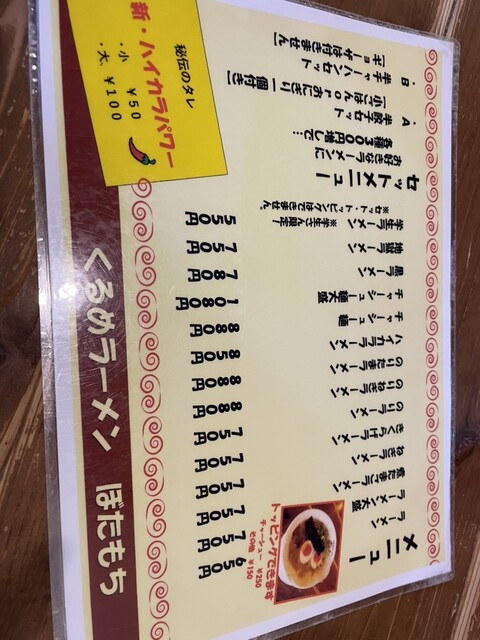 メニュー
ラーメン 650円
ラーメン大盛 750円
煮たまごラーメン 750円
ねぎラーメン 750円
きくらげラーメン 750円
のりラーメン 750円
のりねぎラーメン 880円
のりたまラーメン 880円
ハイカララーメン 850円
チャーシュー麺 880円
チャーシュー麺大盛 1080円
黒ラーメン 780円
地獄ラーメン 750円
学生ラーメン ※学生さん限定! 550円
※セット・トッピングはできません
セットメニュー
お好きなラーメンに
各種300円増しで…
・A 半餃子セット
[小ごはんorおにぎり一個付き]
・B 半チャーハンセット
[ギョーザは付きません]
トッピングできます
チャーシュー ¥250
その他 ¥150
秘伝のタレ
新・ハイカラパワー
・小 ¥50
・大 ¥100
くるめラーメン ぼたもち